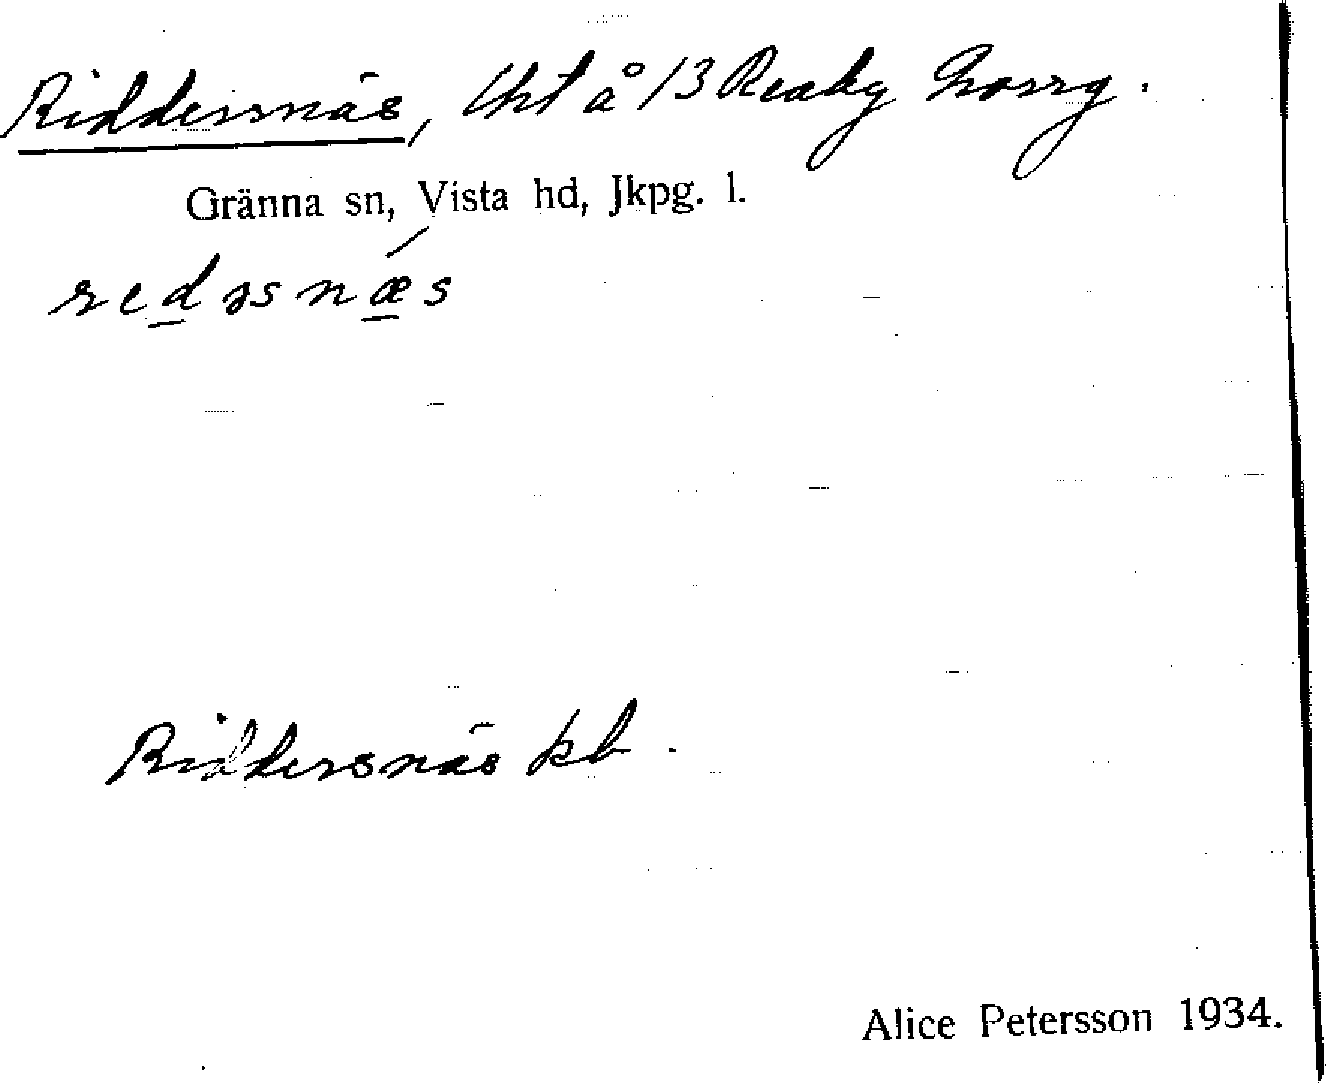 Riddersnäs, lht å 1/3 Reaby Norrg.
Gränna sn, Vista hd, Jkpg. l.
redəsnæs
Riddersnäs kb.
Alice Petersson 1934.